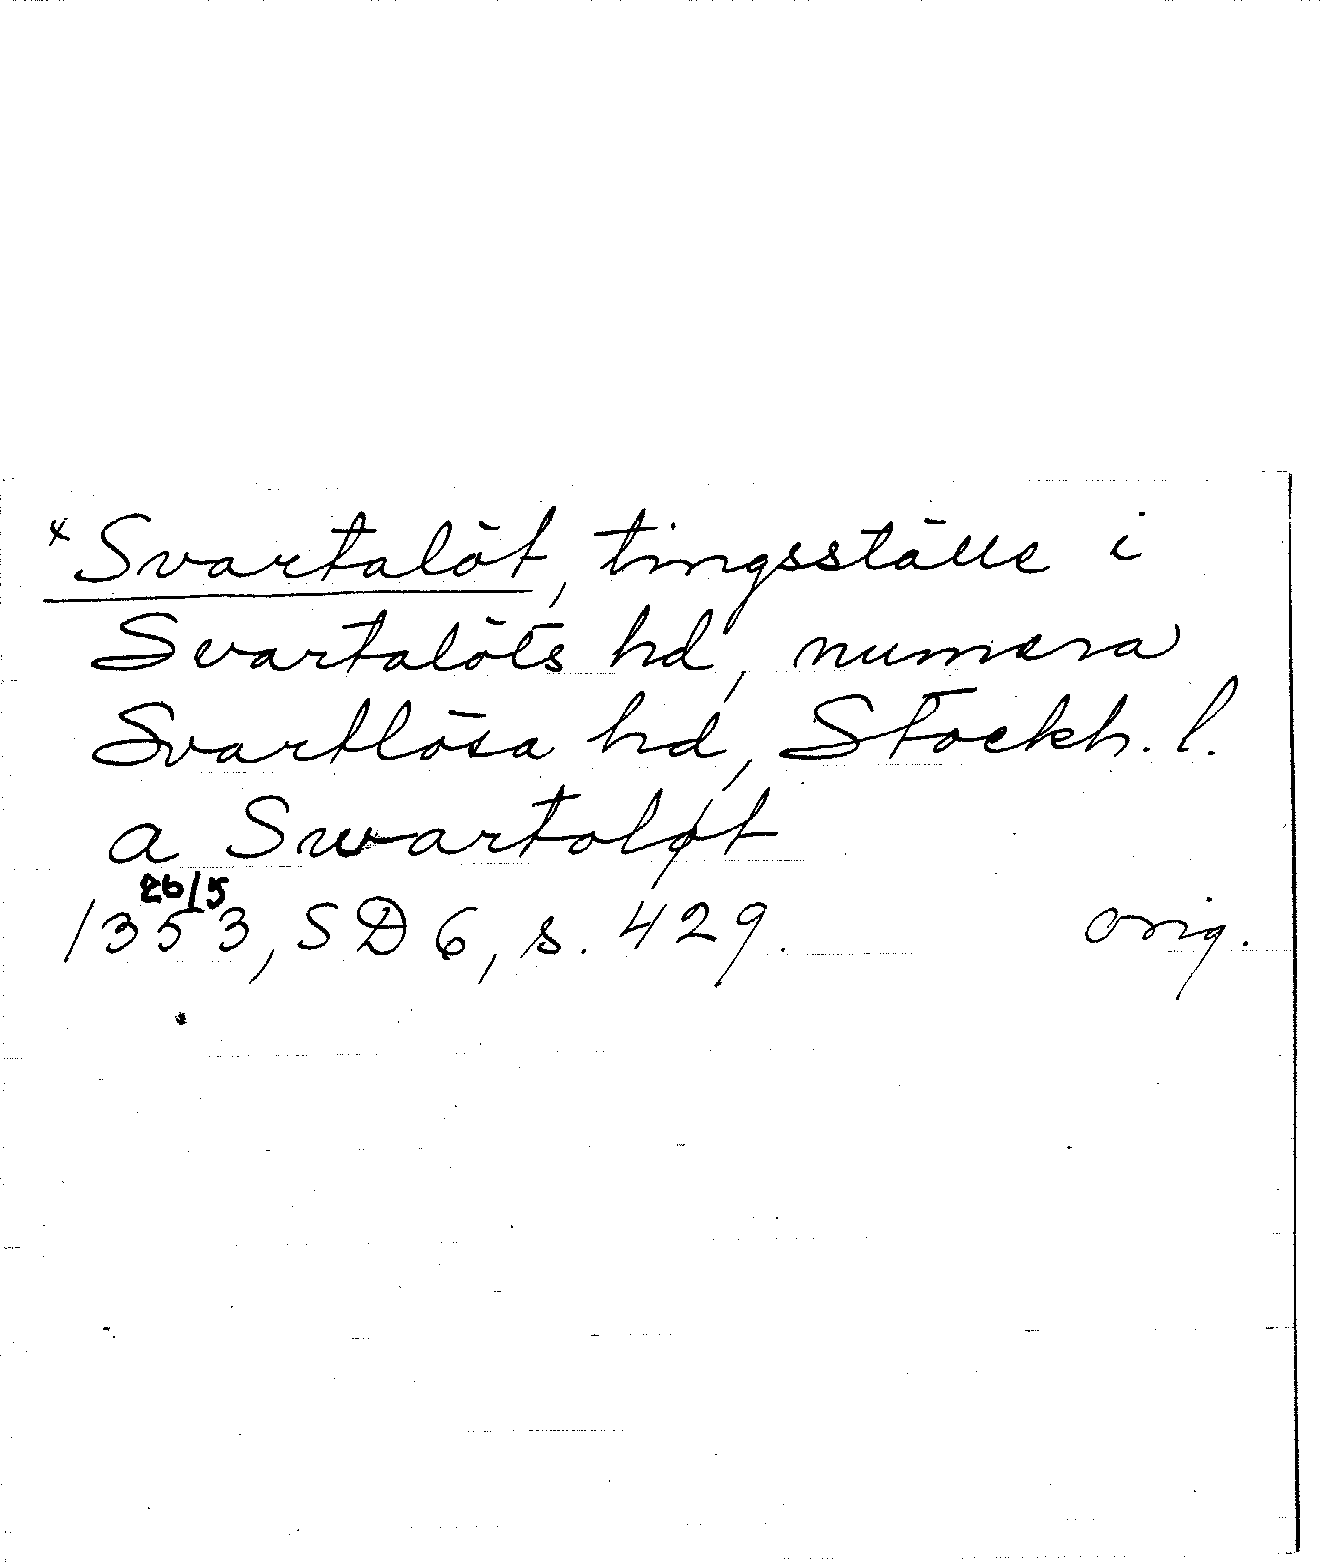 ×Svartalöt, tingsställe i
Svartalöts hd, numera
Svartlösa hd, Stockh. l.
a Swartoløt
26/5
1353, SD 6, s. 429. orig.